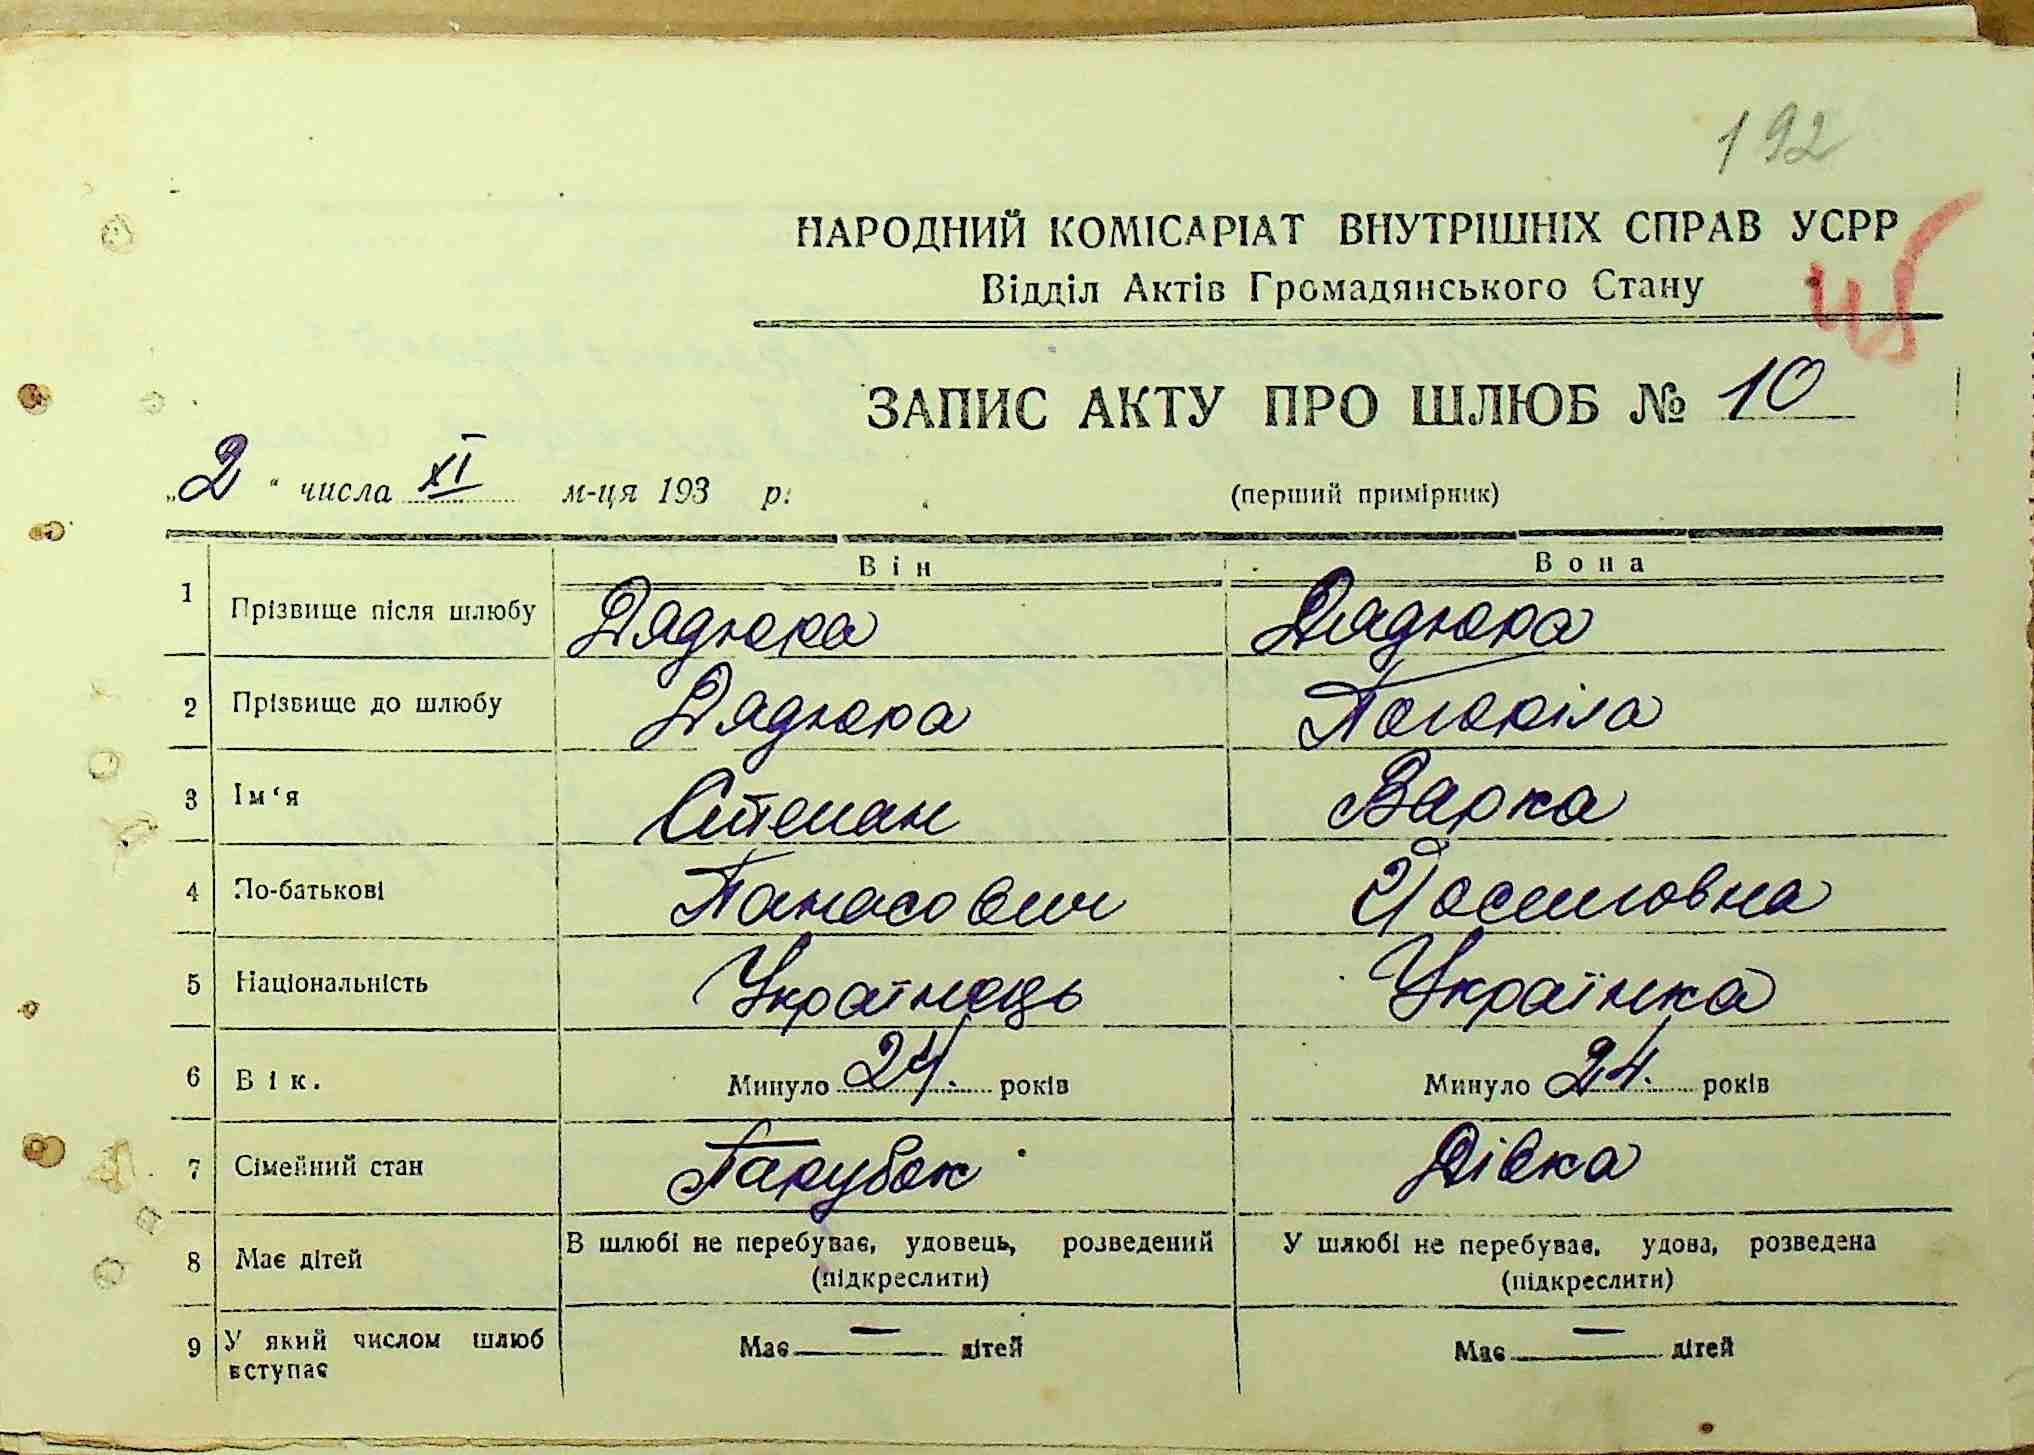 192
НАРОДНИЙ КОМІСАРІАТ ВНУТРІШНІХ СПРАВ УСРР
45
Відділ Актів Громадянського Стану
ЗАПИС АКТУ ПРО ШЛЮБ № 10
„2“ числа XI м-ця 193 р.
(перший примірник)
Він Вона
1 Прізвище після шлюбу Дядюра Дядюра
2 Прізвище до шлюбу Дядюра Погоріла
3 Ім‘я Степан Варка
4 По-батькові Панасович Йосиповна
5 Національність Українець Українка
6 Вік. Минуло 24. років Минуло 24. років
7 Сімейний стан Парубок Дівка
8 Має дітей В шлюбі не перебуває, удовець, розведений У шлюбі не перебуває, удова, розведена
(підкреслити) (підкреслити)
9 У який числом шлюб Має — дітей Має — дітей
вступає